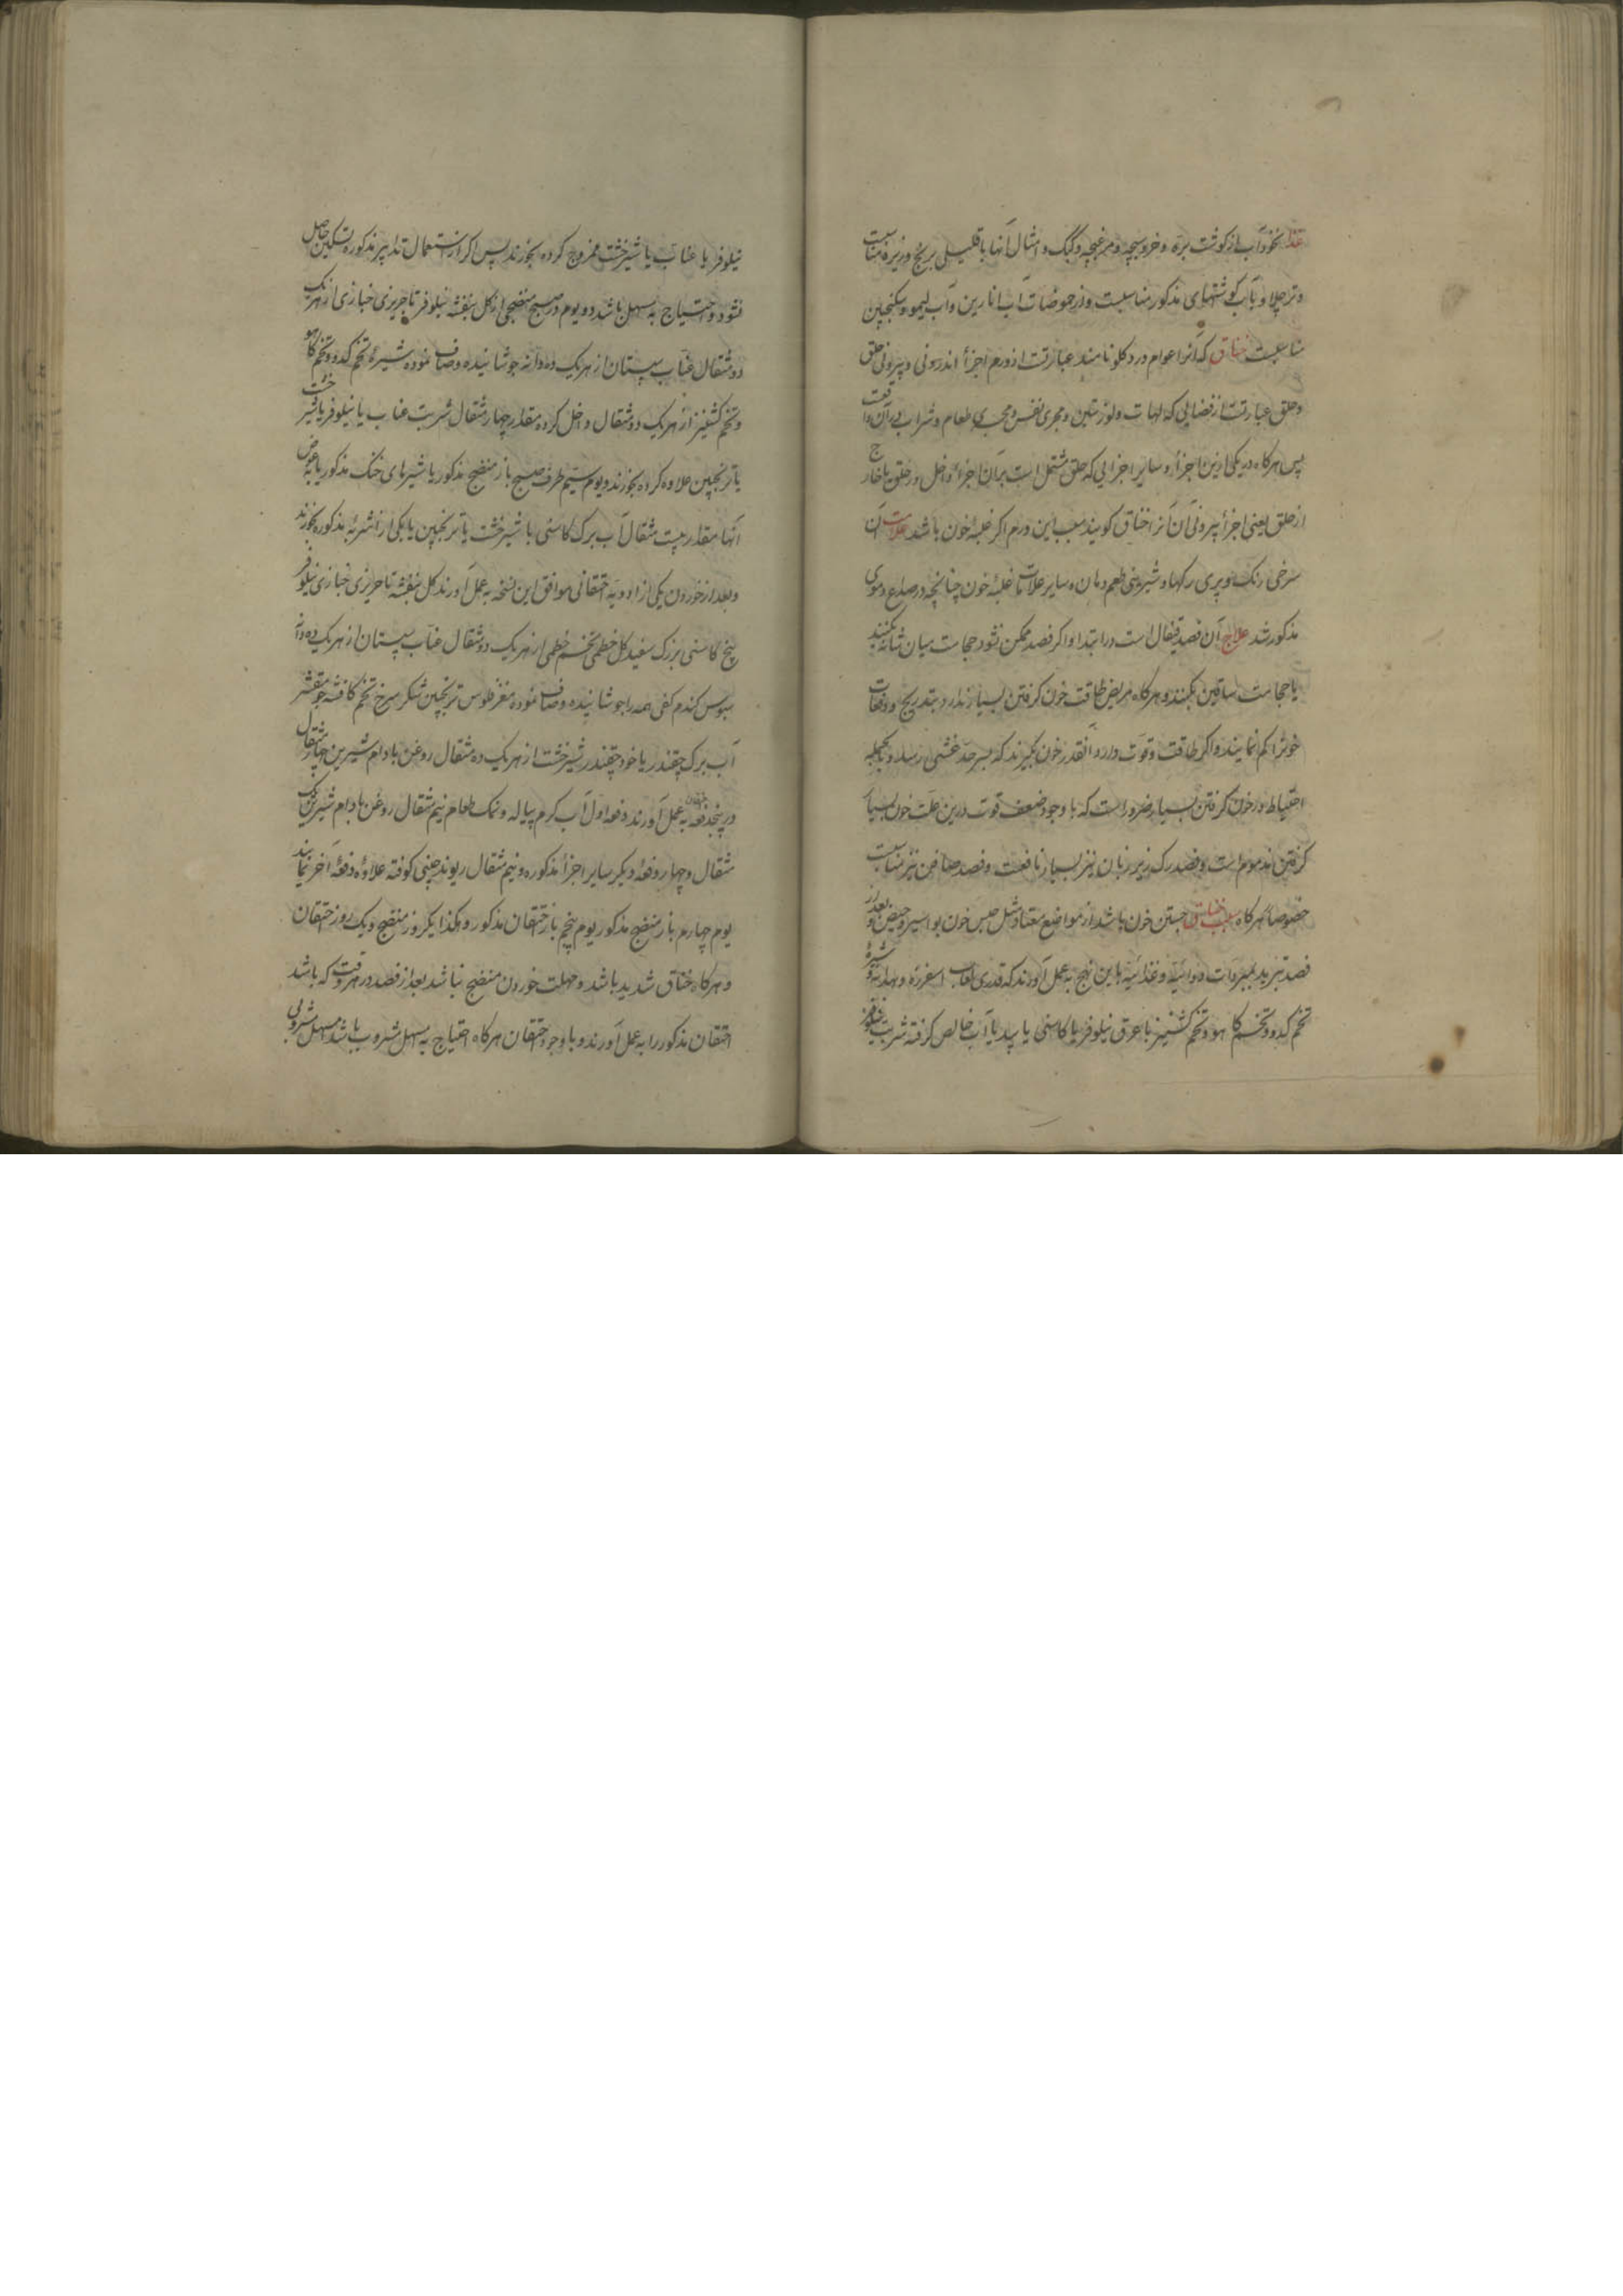 غذا نخودآب از کوشت بره و خروسبچه و مرغبچه و کبک و امثال آنها با قلیلی برنج و زیره مناسبست
و تر چلاو با آب کوشتهای مذکور مناسبست و از حموضات آب انارین و آب لیمو و سکنجبین
مناسبست خناق که آنرا عوام درد کلو نامند عبارتست از ورم اجزأ اندرونی و بیرونی حلق
و حلق عبارتست از فضایی که لهات و لوزتین و مجری نفس و مجری طعام و شراب در آن واقعست
پس هرکاه در یکی ازین اجزأ و سایر اجزایی که حلق مشتمل است بر آن اجزأ داخل در حلق یا خارج
از حلق یعنی اجزأ بیرونی آن آنرا خناق کویند سبب این ورم اکر غلبه خون باشد علامت آن
سرخی رنک و پری رکها و شیرینی طعم دهان و سایر علامات غلبهٔ خون چنانچه در صداع دموی
مذکور شد علاج آن فصد قیفال است در ابتدا و اکر فصد ممکن نشود حجامت میان شانه بکنند
یا حجامت ساقین بکنند و هرکاه مریض طاقت خون کرفتن بسیار ندارد بتدریج و دفعات
خونرا کم نمایند و اکر طاقت و قوت دارد آنقدر خون بکیرند که بسرحد غشی رسد و بالجمله
احتیاط در خون کرفتن بسیار ضرور است که با وجود ضعف قوت درین علت خون بسیار
کرفتن مذموم است و فصد رک زیر زبان نیز بسیار نافعست و فصد صافن نیز مناسبست
خصوصا هرکاه سبب خناق حبس خون باشد از مواضع معتاد مثل حبس خون بواسیر و حیض و بعد از
فصد تبرید بمبردات دوائیه و غذائیه باین نهج به عمل آورند که قدری لعاب اسفرزه و بهدانه و شیرهٔ
تخم کدو و تخم کاهو و تخم کشنیز با عرق نیلوفر یا کاسنی یا بید یا آب خالص کرفته شربت نیلوفر
نیلوفر یا عناب یا شیرخشت ممزوج کرده بخورند پس اکر از استعمال تدابیر مذکوره تسکین حاصل
نشود و احتیاج به مسهل باشد دو یوم در صبح منضجی از کل بنفشه نیلوفر تاجریزی خبازی از هر یک
دو مثقال عناب سپستان از هریک ده دانه جوشانیده و صاف نموده شیرهٔ تخم کدو و تخم کاهو
و تخم کشنیز از هریک دو مثقال داخل کرده مقدار چهار مثقال شربت عناب یا نیلوفر یا شیرخشت
یا ترنجبین علاوه کرده بخورند و یوم سیم طرف صبح باز منضج مذکور یا شیرهای خنک مذکور یا به عوض
آنها مقدار بیست مثقال آب برک کاسنی با شیرخشت یا ترنجبین یا یکی از اشربهٔ مذکوره بخورند
و بعد از خوردن یکی از ادویه احتقانی موافق این نسخه به عمل آورند کل بنفشه تاجریزی خبازی نیلوفر
بیخ کاسنی بزرک سفید کل خطمی تخم خطمی از هریک دو مثقال عناب سپستان از هریک ده دانه
سبوس کندم کفی همه را جوشانیده و صاف نموده مغز فلوس ترنجبین شکر سرخ تخم کافشه جو مقشر
آب برک چقندر یا خود چقندر شیرخشت از هریک ده مثقال روغن بادام شیرین چهار مثقال
در پنجدفعه حقنه به عمل آورند دفعه اول آب کرم پیاله و نمک طعام نیم مثقال روغن بادام شیرین یک
مثقال و چهار دفعهٔ دیکر سایر اجزأ مذکوره و نیم مثقال ریوند چینی کوفته علاوهٔ دفعهٔ آخر نمایند
یوم چهارم باز منضج مذکور یوم پنجم باز حتقان مذکور و هکذا یکروز منضج و یک روز حتقان
و هرکاه خناق شدید باشد و مهلت خوردن منضج نباشد بعد از فصد در هر وقت که باشد
احتقان مذکور را به عمل آورند و با وجود حتقان هرکاه احتیاج به مسهل مشروب باشد مسهل مشروبی